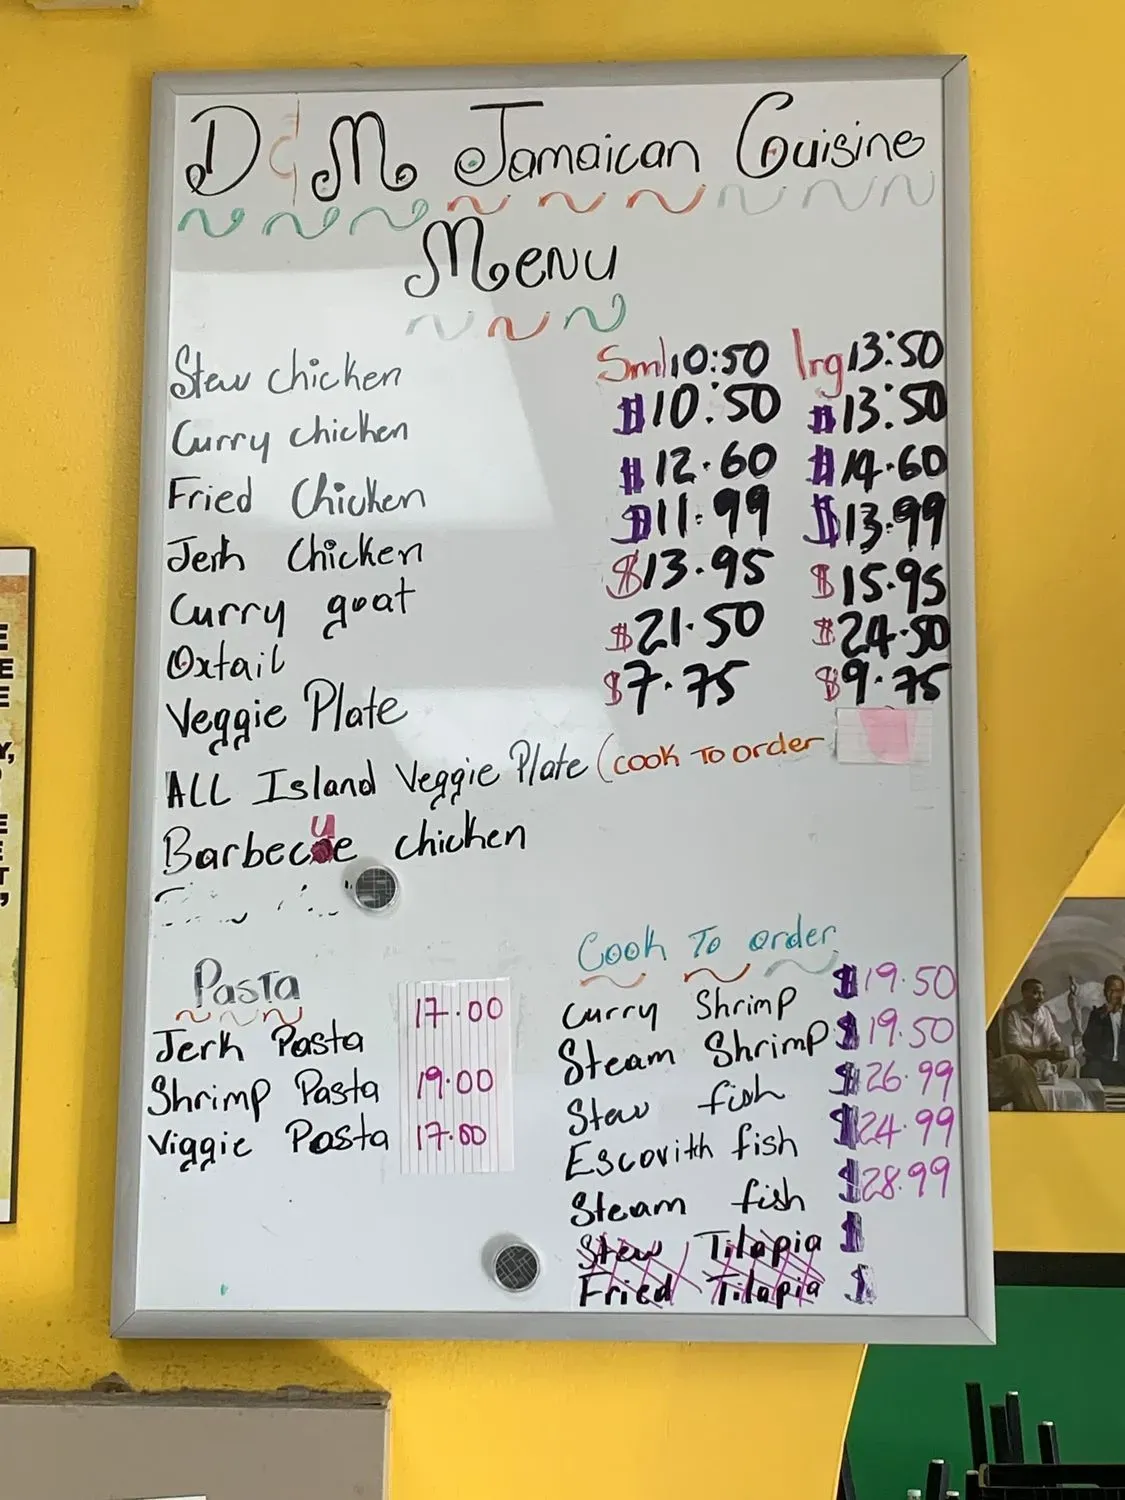 D & M Jamaican Cuisine
Menu
Stew chicken Sml 10:50 lrg 13:50
Curry chicken $10:50 $13:50
Fried Chicken $12.60 $14.60
Jerk Chicken $11.99 $13.99
Curry goat $13.95 $15.95
Oxtail $21.50 $24.50
Veggie Plate $7.75 $9.75
ALL Island Veggie Plate (cook To order
Barbecue chicken
Pasta
Jerk Pasta 17.00
Shrimp Pasta 19.00
Viggie Pasta 17.00
Cook To order
Curry Shrimp $19.50
Steam Shrimp $19.50
Stew fish $26.99
Escovith fish $24.99
Steam fish $28.99
Stew Tilapia $
Fried Tilapia $